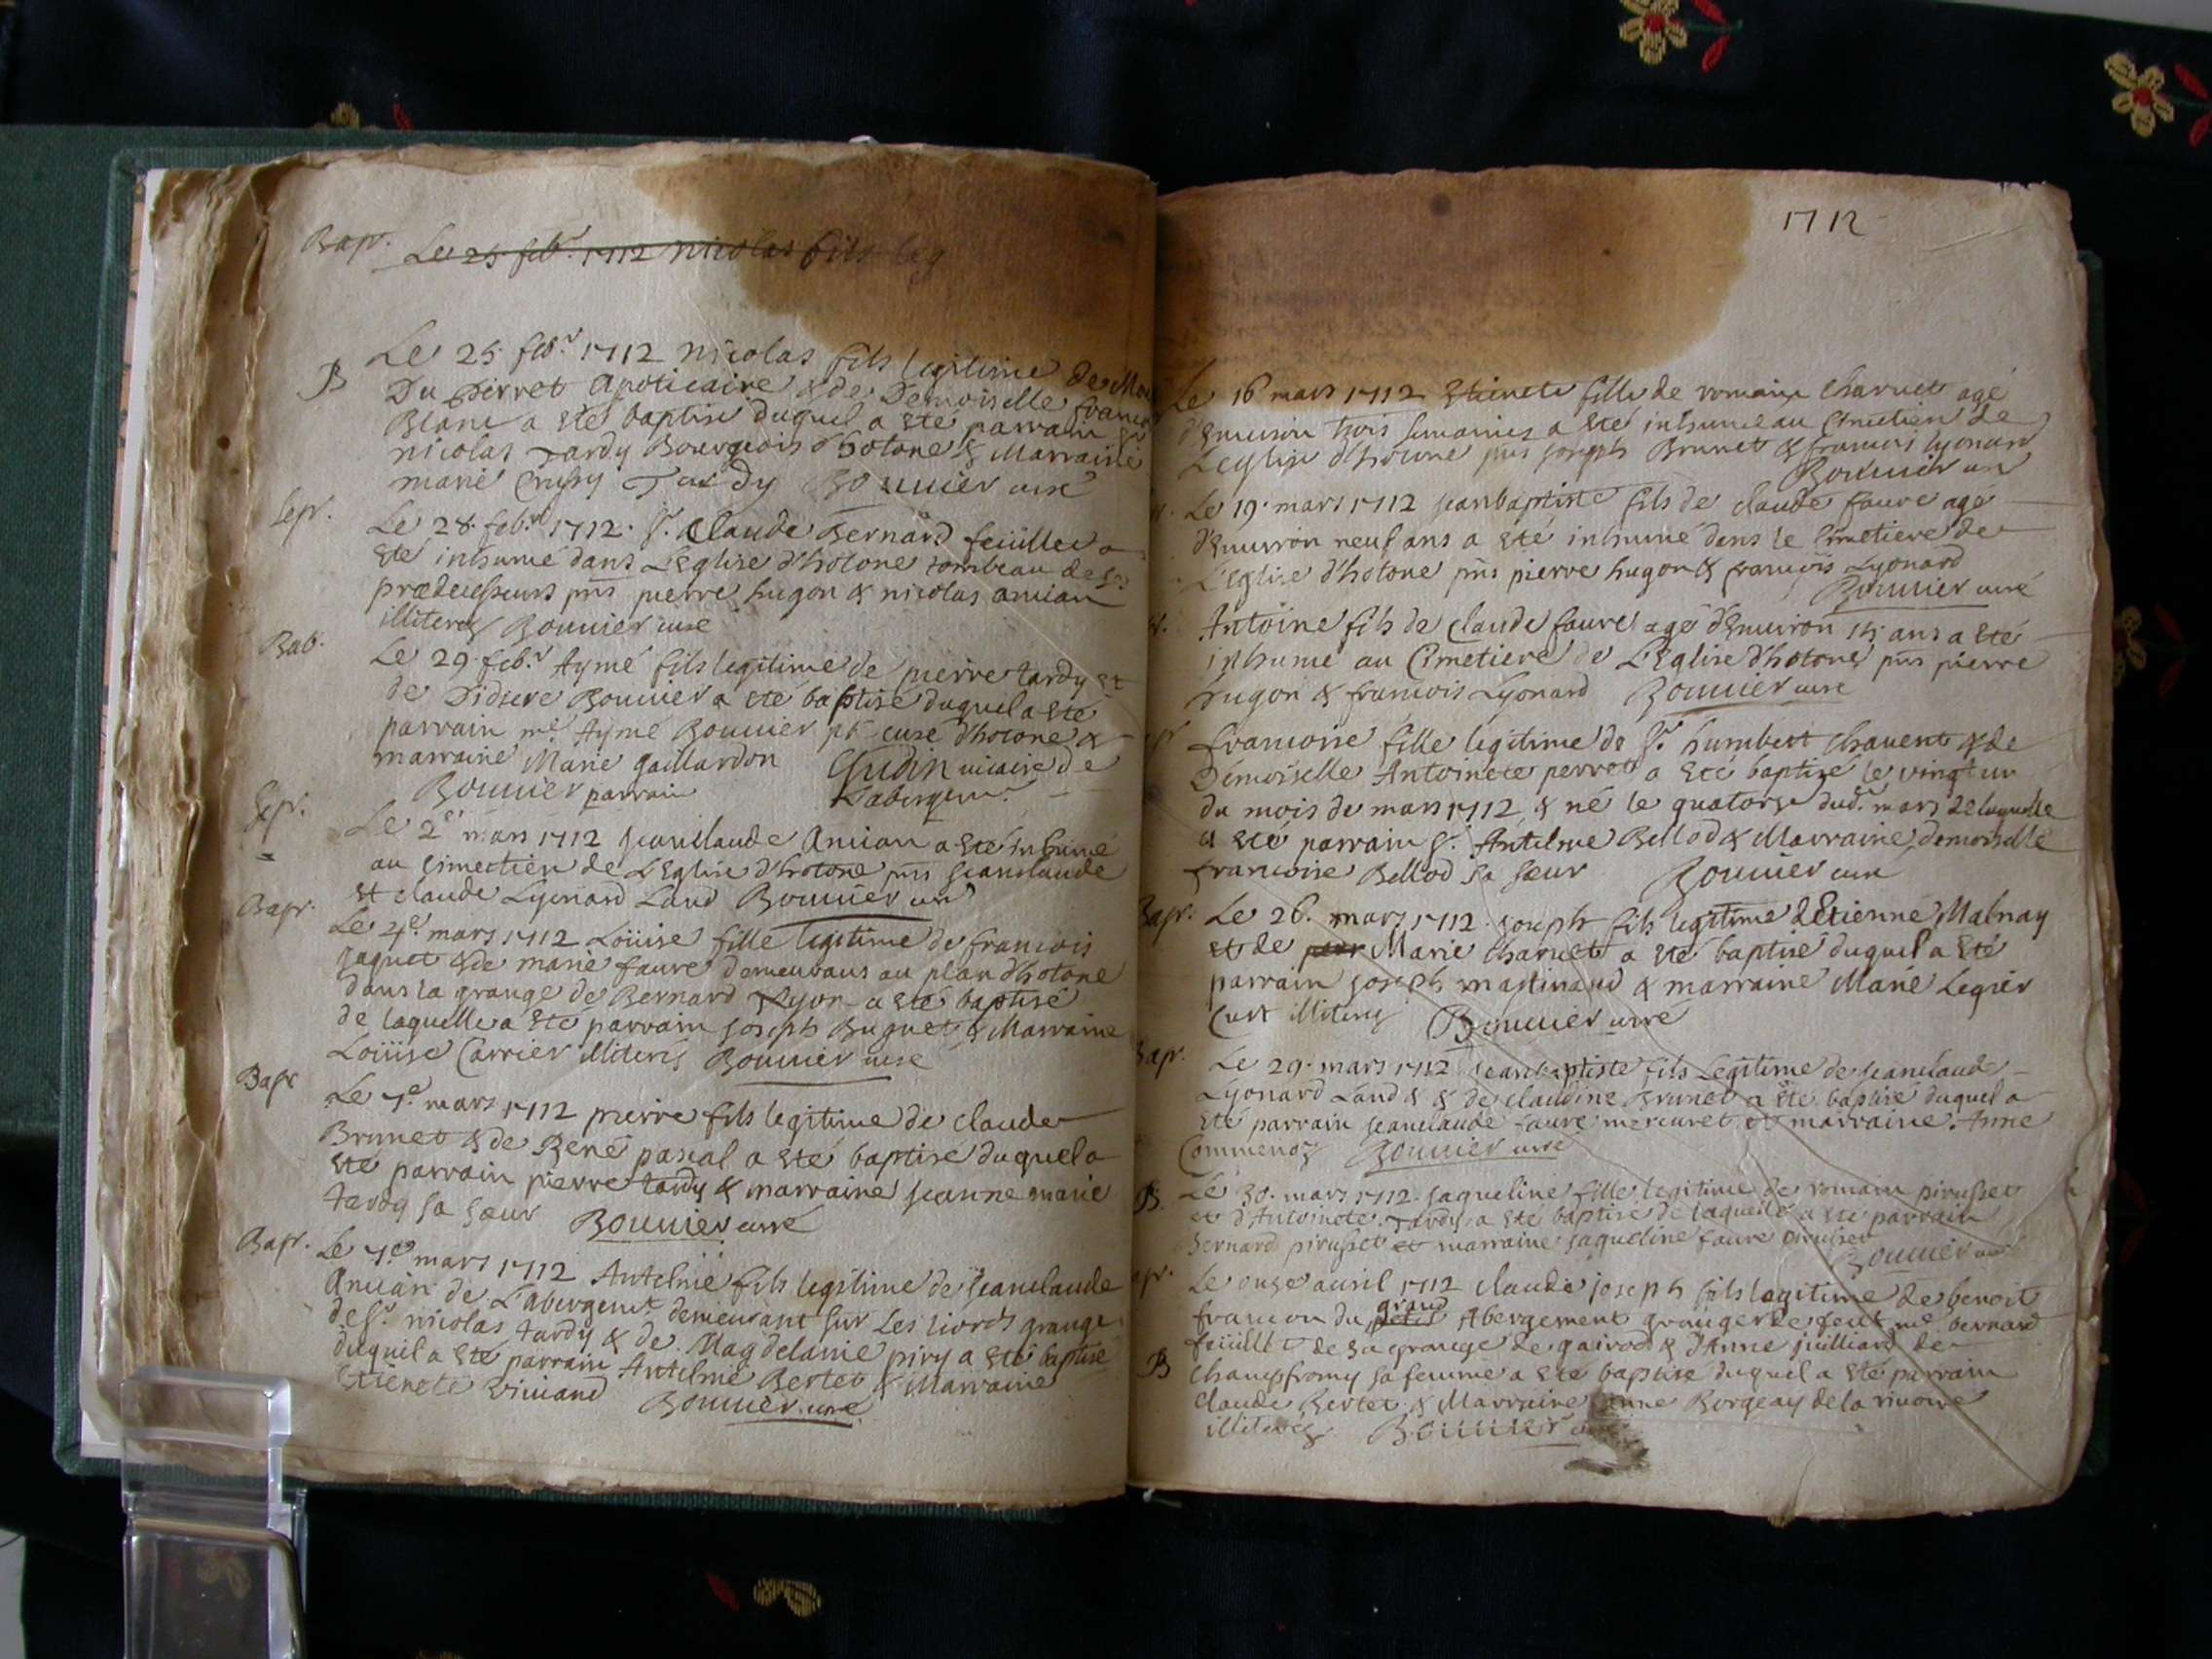 Bapt. Le 25 feb.r 1712 nicolas fils leg
B Le 25 feb.r 1712 nicolas fils legitime de
Du Pierret Apoticaire & de Demoiselle
Blanc a ete baptise duquel a eté parrain Sr
nicolas Tardy Bourgeois d'hotone & Marraine
marie Tardy Bouuier curé
Sepr. Le 28. feb.r 1712. Sr. Claude Bernard feüillet a
eté inhumé dans L'Eglise d'hotone tombeau de ses
prædecesseurs pñs pierre hugon & nicolas anuian
illiteres Bouuier curé
Bab. Le 29. feb.r Aymé fils legitime de pierre tardy et
de Didiere Bouuier a eté baptisé duquel a eté
parrain mre Aymé Bouuier pt curé d'hotone &
marraine Marie gaillardon Gudin uicaire de
Bouuier parrain Labergemt.
Sepr. Le 2e mars 1712 Jeanclaude Anuian a eté inhumé
au cimectien de L'Eglise d'hotone pñs Jeanclaude
et claude Lyonard Land Bouuier curé
Bapr. Le 4e. mars 1712 Loüise fille legitime de francois
Jaquet & de marie faure demeurans au plan d'hotone
dans la grange de Bernard Lyon a eté baptisé
de laquelle a eté parrain Joseph Buguet & Marraine
Loüise Carrier illiterés Bouuier curé
Bapr Le 7e. mars 1712 pierre fils legitime de claude
Brunet & de René pascal a eté baptisé duquel a
eté parrain pierre tardy & marraine Jeanne marie
tardy sa sœur Bouuier curé
Bapr. Le 7e mars 1712 Antelme fils legitime de Jeanclaude
Anuian de L'abergemt demeurant sur Les niords grange
de Sr nicolas tardy & de Magdelaine piry a eté baptisé
duquel a eté parrain Antelme Bertet & Marraine
Etienete uiuiand Bouuier curé
1712
Le 16 mars 1712 Etienete fille de romain Charuet agé
d'Enuiron trois semaines a eté inhumé au Cimetien de
L'eglise d'hotone pñs Joseph Brunet & francois lyonard
Bouuier curé
Le 19. mars 1712 Jeanbaptiste fils de claude faure agé
d'Enuiron neuf ans a eté inhumé dans le Cimetiere de
L'Eglise d'hotone pñs pierre hugon & francois Lyonard
Bouuier curé
Antoine fils de claude faure agé d'Enuiron ans a eté
inhumé au Cimetiere de L'Eglise d'hotone pñs pierre
hugon & francois Lyonard Bouuier curé
francoise fille legitime de Sr. humbert chauent & de
Démoiselle Antoinete perret a eté baptizé le vingt un
du mois de mars 1712 & né le quatorse dud.t mars de laquelle
a eté parrain Sr. Antelme Bellod & Marraine demoiselle
francoise Bellod sa sœur Bouuier curé
Bapr. Le 26. mars 1712. Joseph fils legitime d'Etienne Malnay
et de Marie charuet a eté baptisé duquel a eté
parrain Joseph mastinand & marraine Marie Legier
illiterés Bouuier curé
Bapr. Le 29. mars 1712 Jeanbaptiste fils Legitime de Jeanclaude
Lyonard Land & & de claudine Brunet a eté baptisé duquel a
eté parrain Jeanclaude faure mercuret et marraine Anne
Commenoz Bouuier curé
B. Le 30. mars 1712. Jaqueline fille legitime de romain pirusset
et d'Antoinete Tardy a eté baptisé de laquelle a eté parrain
Bernard pirusset et marraine Jaqueline faure pirusset
Bouuier curé
Le onse auril 1712 claude joseph fils legitime de benoit
francon du petit grand Abergement granger de feut mre bernard
feüillet de sa grange de gairod & d'Anne juilliard de
B champfromy sa femme a eté baptisé duquel a eté parrain
claude Bertet & Marraine anne Borgeay de la riuoire
illiterés Bouuier curé